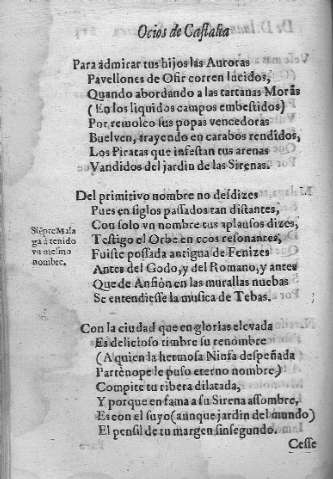 Ocios de Castalia
Para admirar tus hijos las Auroras
Pavellones de Ofir corren lucidos,
Quando abordando a las tartanas Moras
(En los liquidos campos embestidos)
Por remolco sus popas vencedoras
Buelven, trayendo en carabos rendidos,
Los Piratas que infestan tus arenas
Vandidos del jardin de las Sirenas.
Del primitivo nombre no desdizes
Pues en siglos passados tan distantes,
Con solo vn nombre tus aplausos dizes,
Testigo el Orbe en ecos resonantes,
Fuiste possada antigua de Fenizes
Antes del Godo, y del Romano, y antes
Que de Anfion en las murallas nuebas
Se entendiesse la musica de Tebas.
Siẽpre Mala
ga á tenido
vn mesmo
nombre.
Con la ciudad que en glorias elevada
Es delicioso timbre su renombre
(A quien la hermosa Ninfa despeñada
Partènope le puso eterno nombre)
Compite tu ribera dilatada,
Y porque en fama a su Sirena assombre,
Es con el suyo (aunque jardin del mundo)
El pensil de tu margen sinsegundo.
Cesse